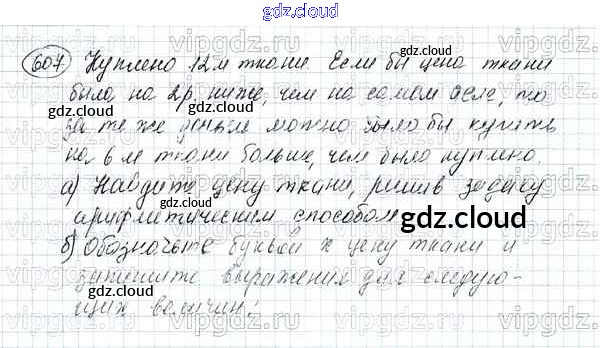 gdz.cloud
607 Куплено 12 м ткани. Если бы цена ткани
была на 2 р. ниже, чем на самом деле, то
за те же деньги можно было бы купить
на 6 м ткани больше, чем было куплено.
а) Найдите цену ткани, решив задачу
арифметическим способом
б) Обозначьте буквой x цену ткани и
запишите выражения для следую-
щих величин: